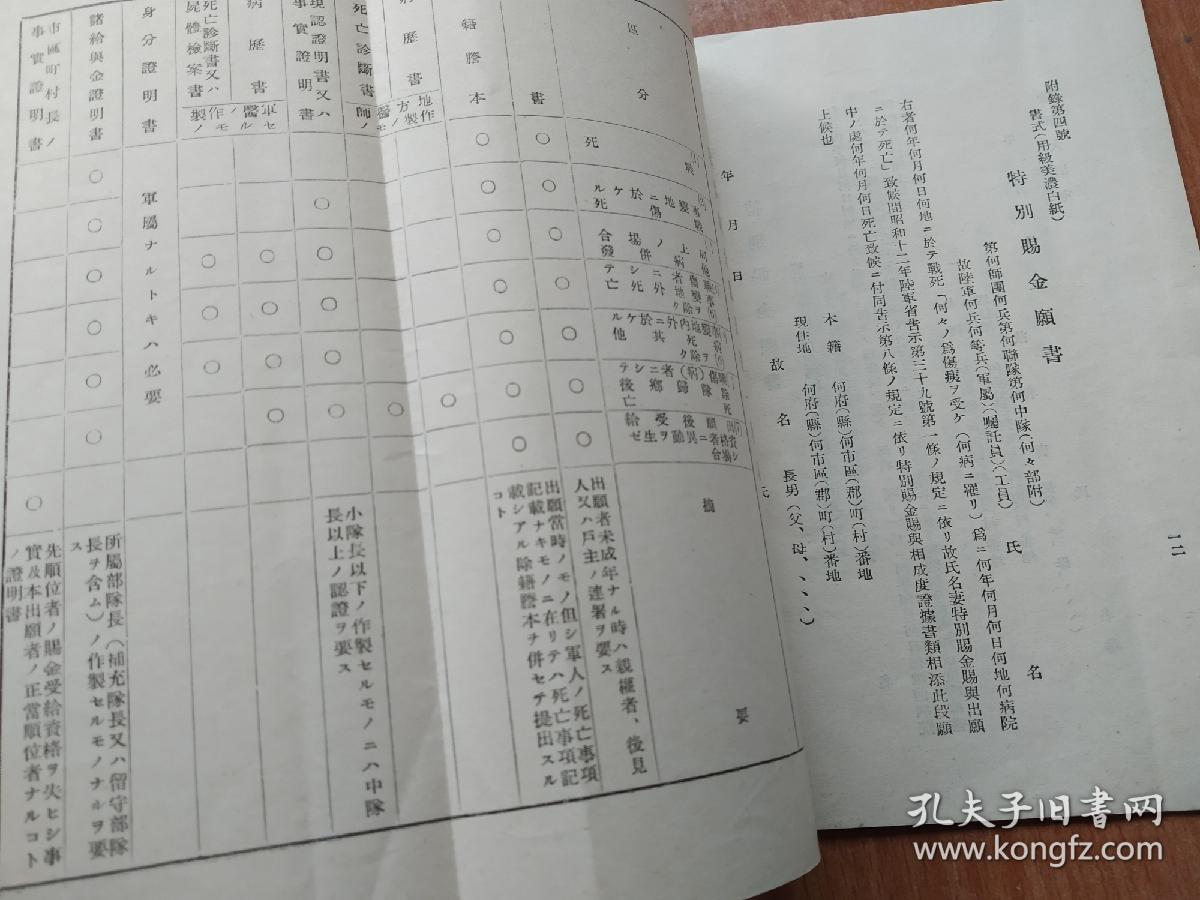 一二
附錄第四號
書式(用紙美濃白紙)
特別賜金願書
第何師團何兵第何聯隊第何中隊(何々部附)
故陸軍何兵何等兵(軍屬)(囑託員)(工員) 氏名
右者何年何月何日何地ニ於テ戰死「何々ノ爲傷痍ヲ受ケ(何病ニ罹リ)爲ニ何年何月何日何地何病院
ニ於テ死亡」致候間昭和十二年陸軍省告示第三十九號第一條ノ規定ニ依リ故氏名妻特別賜金賜與出願
中ノ處何年何月何日死亡致候ニ付同告示第八條ノ規定ニ依リ特別賜金賜與相成度證據書類相添此段願
上候也
年月日
本籍 何府(縣)何市區(郡)町(村)番地
現住地 何府(縣)何市區(郡)町(村)番地
故名 長男(父、母、、、、)
氏
區分
戰死
摘要
書
出願者未成年ナル時ハ親權者、後見
人又ハ戶主ノ連署ヲ要ス
籍謄本
出願當時ノモノ但シ軍人ノ死亡事項
記載ナキモノニ在リテハ死亡事項記
載シアル除籍謄本ヲ併セテ提出スル
コト
病歷書
地方醫ノ製作モノ
死亡診斷書
現認證明書又ハ
事實證明書
小隊長以下ノ作製セルモノニハ中隊
長以上ノ認證ヲ要ス
病歷書
死亡診斷書又ハ
屍體檢案書
軍醫ノ作製セルモノ
身分證明書
軍屬ナルトキハ必要
諸給與金證明書
所屬部隊長(補充隊長又ハ留守部隊
長ヲ含ム)ノ作製セルモノナルヲ要
ス
市區町村長ノ
事實證明書
先順位者ノ賜金受給資格ヲ失ヒシ事
實及本出願者ノ正當順位者ナルコト
ノ證明書
孔夫子旧书网
www.kongfz.com